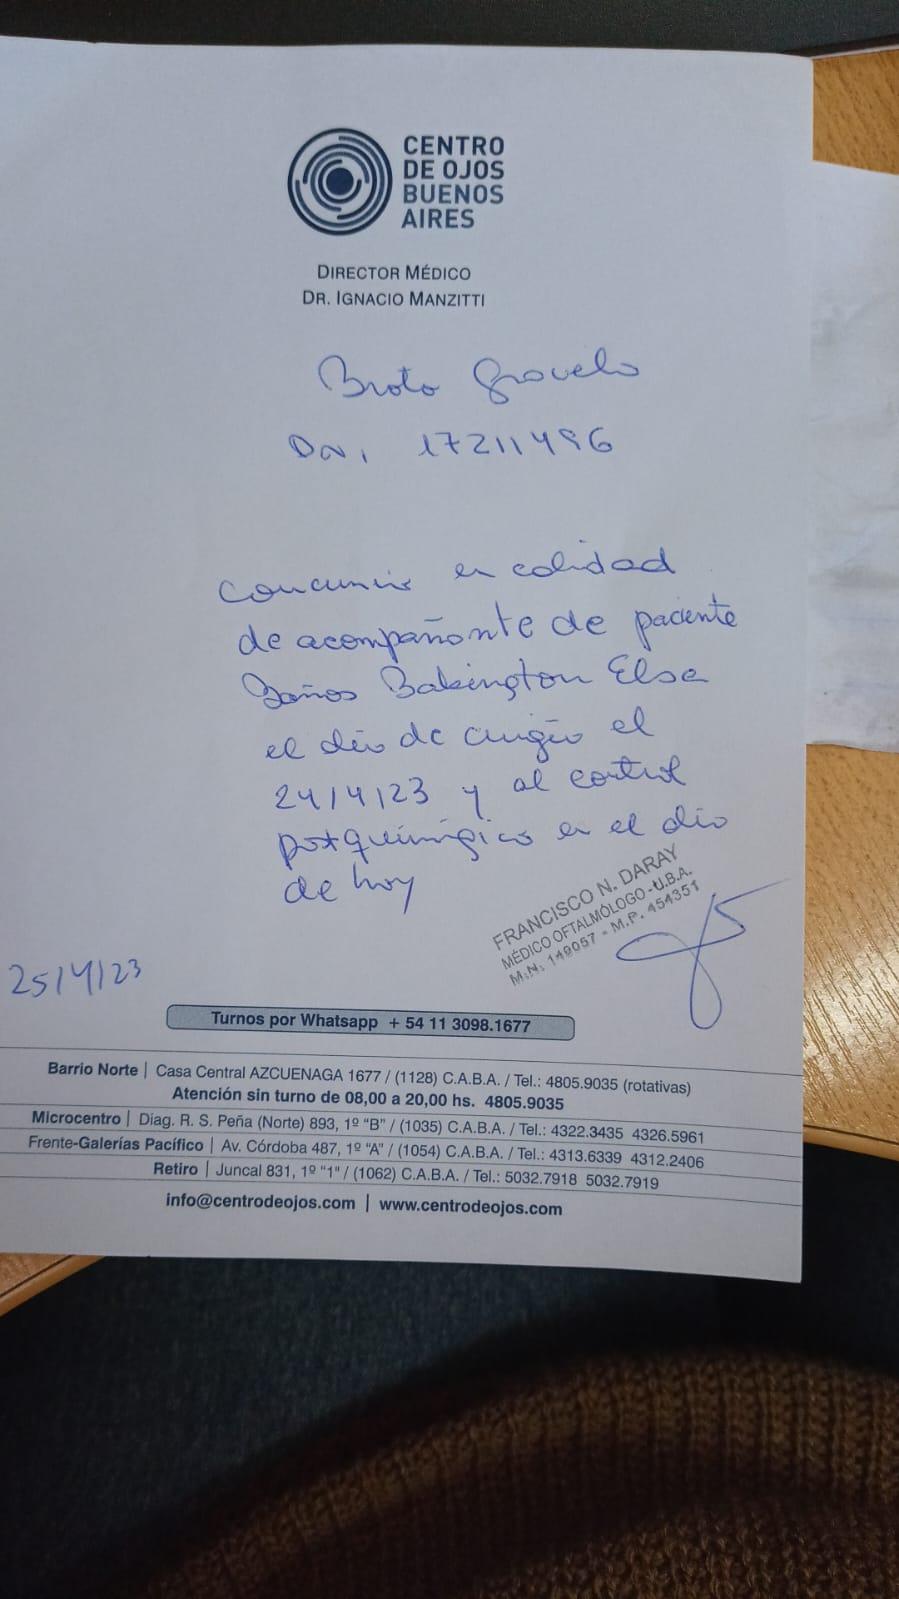 CENTRO
DE OJOS
BUENOS
AIRES
DIRECTOR MÉDICO
DR. IGNACIO MANZITTI
Broto
DNI 17211496
Concurrió en calidad
de acompañante de paciente
Baños Bakington Elsa
el día de cirugía el
24/4/23 y al control
postquirúrgico en el día
de hoy
FRANCISCO N. DARAY
MÉDICO OFTALMÓLOGO - U.B.A.
M.N. 149057 - M.P. 454351
25/4/23
Turnos por Whatsapp + 54 11 3098.1677
Barrio Norte | Casa Central AZCUENAGA 1677 / (1128) C.A.B.A. / Tel.: 4805.9035 (rotativas)
Atención sin turno de 08,00 a 20,00 hs. 4805.9035
Microcentro | Diag. R. S. Peña (Norte) 893, 1º "B" / (1035) C.A.B.A. / Tel.: 4322.3435 4326.5961
Frente-Galerías Pacífico | Av. Córdoba 487, 1º "A" / (1054) C.A.B.A. / Tel.: 4313.6339 4312.2406
Retiro | Juncal 831, 1º "1" / (1062) C.A.B.A. / Tel.: 5032.7918 5032.7919
info@centrodeojos.com | www.centrodeojos.com